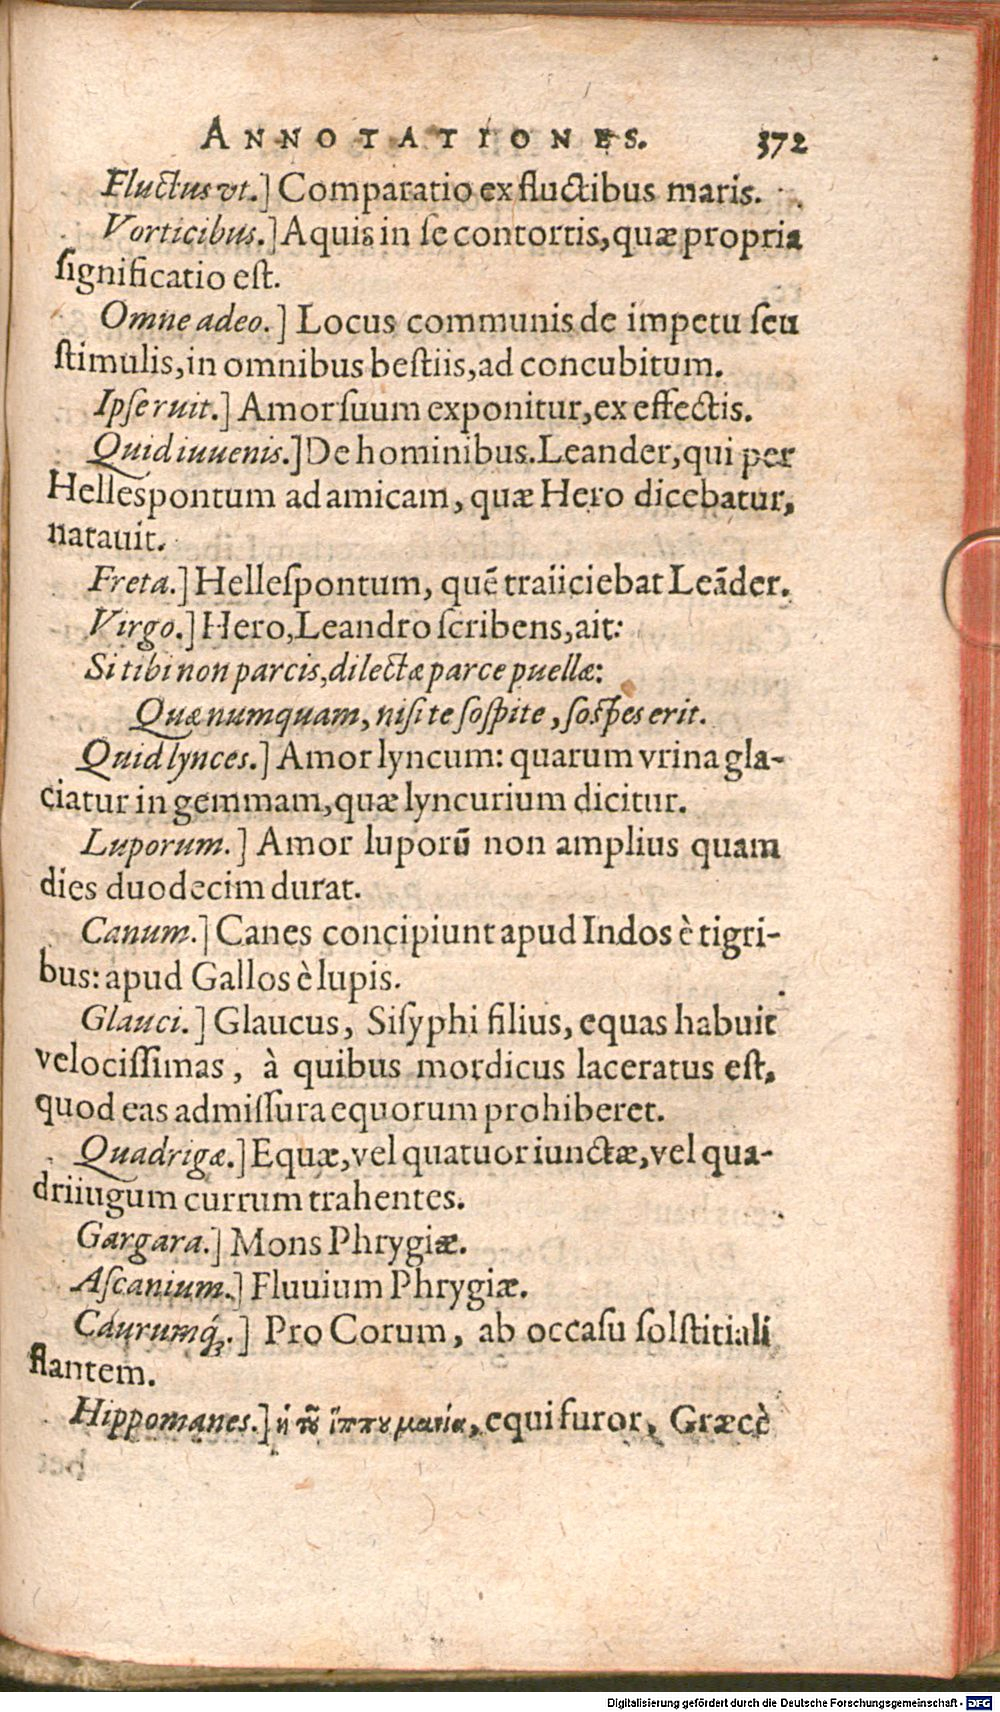 ANNOTATIONES. 372
Fluctus vt.] Comparatio ex fluctibus maris.
Vorticibus.] Aquis in se contortis, quæ propria
significatio est.
Omne adeo.] Locus communis de impetu seu
stimulis, in omnibus bestiis, ad concubitum.
Ipse ruit.] Amor suum exponitur, ex effectis.
Quid iuuenis.] De hominibus. Leander, qui per
Hellespontum ad amicam, quæ Hero dicebatur,
natauit.
Freta.] Hellespontum, quē traiiciebat Leāder.
Virgo.] Hero, Leandro scribens, ait:
Si tibi non parcis, dilectæ parce puellæ:
Quæ numquam, nisi te sospite, sospes erit.
Quid lynces.] Amor lyncum: quarum vrina gla-
ciatur in gemmam, quæ lyncurium dicitur.
Luporum.] Amor luporū non amplius quam
dies duodecim durat.
Canum.] Canes concipiunt apud Indos è tigri-
bus: apud Gallos è lupis.
Glauci.] Glaucus, Sisyphi filius, equas habuit
velocissimas, à quibus mordicus laceratus est,
quod eas admissura equorum prohiberet.
Quadrigæ.] Equæ, vel quatuor iunctæ, vel qua-
driiugum currum trahentes.
Gargara.] Mons Phrygiæ.
Ascanium.] Fluuium Phrygiæ.
Caurumq́;.] Pro Corum, ab occasu solstitiali
flantem.
Hippomanes.] ἡ τοῦ ἵππου μανία, equi furor, Græcè
Digitalisierung gefördert durch die Deutsche Forschungsgemeinschaft - DFG